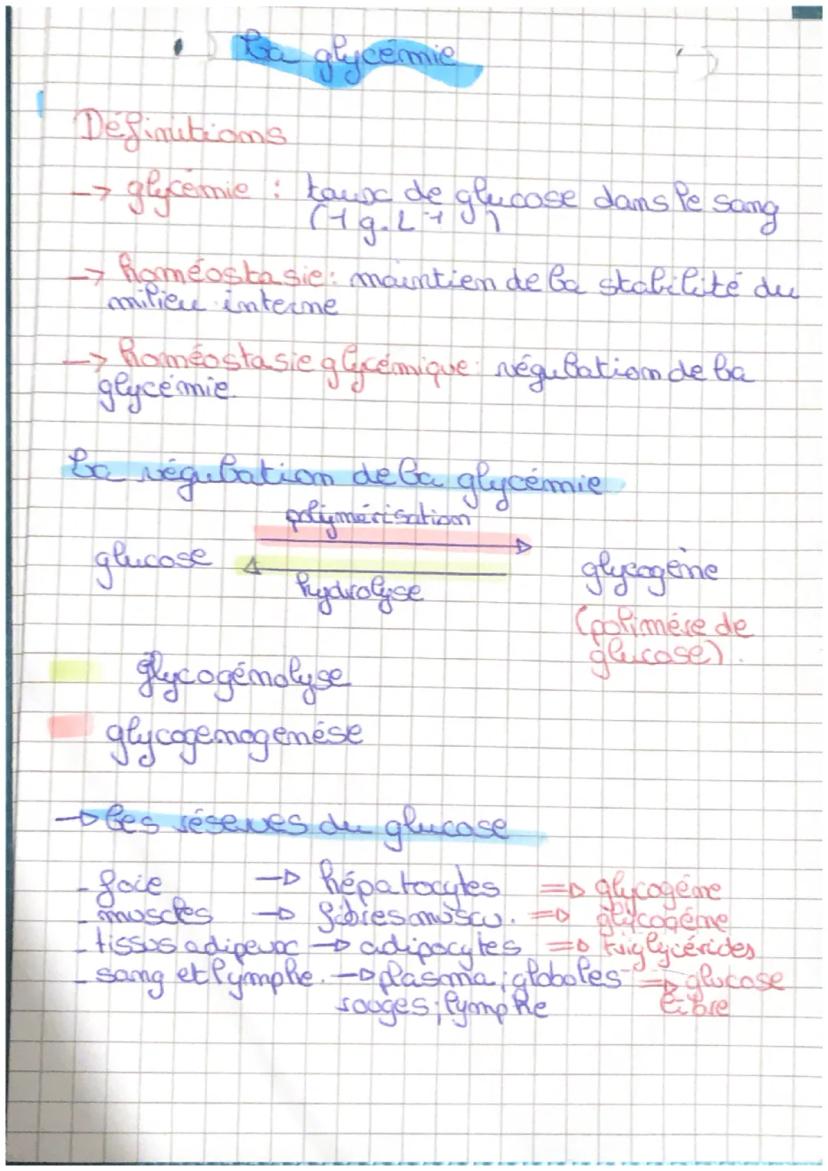 La glycémie
Définitions
-> glycémie : taux de glucose dans le sang
(1 g.L-1)
-> homéostasie : maintien de la stabilité du
milieu interne
-> homéostasie glycémique : régulation de la
glycémie
La régulation de la glycémie
polymérisation
glucose
glycogène
hydrolyse
(polimère de
glucose).
glycogénolyse
glycogenogenèse
-> les réserves du glucose
- foie -> hépatocytes => glycogène
- muscles -> fibres muscu. => glycogène
- tissus adipeux -> adipocytes => triglycérides
- sang et lymphe. -> plasma ; globoles => glucose
rouges ; lymphe libre